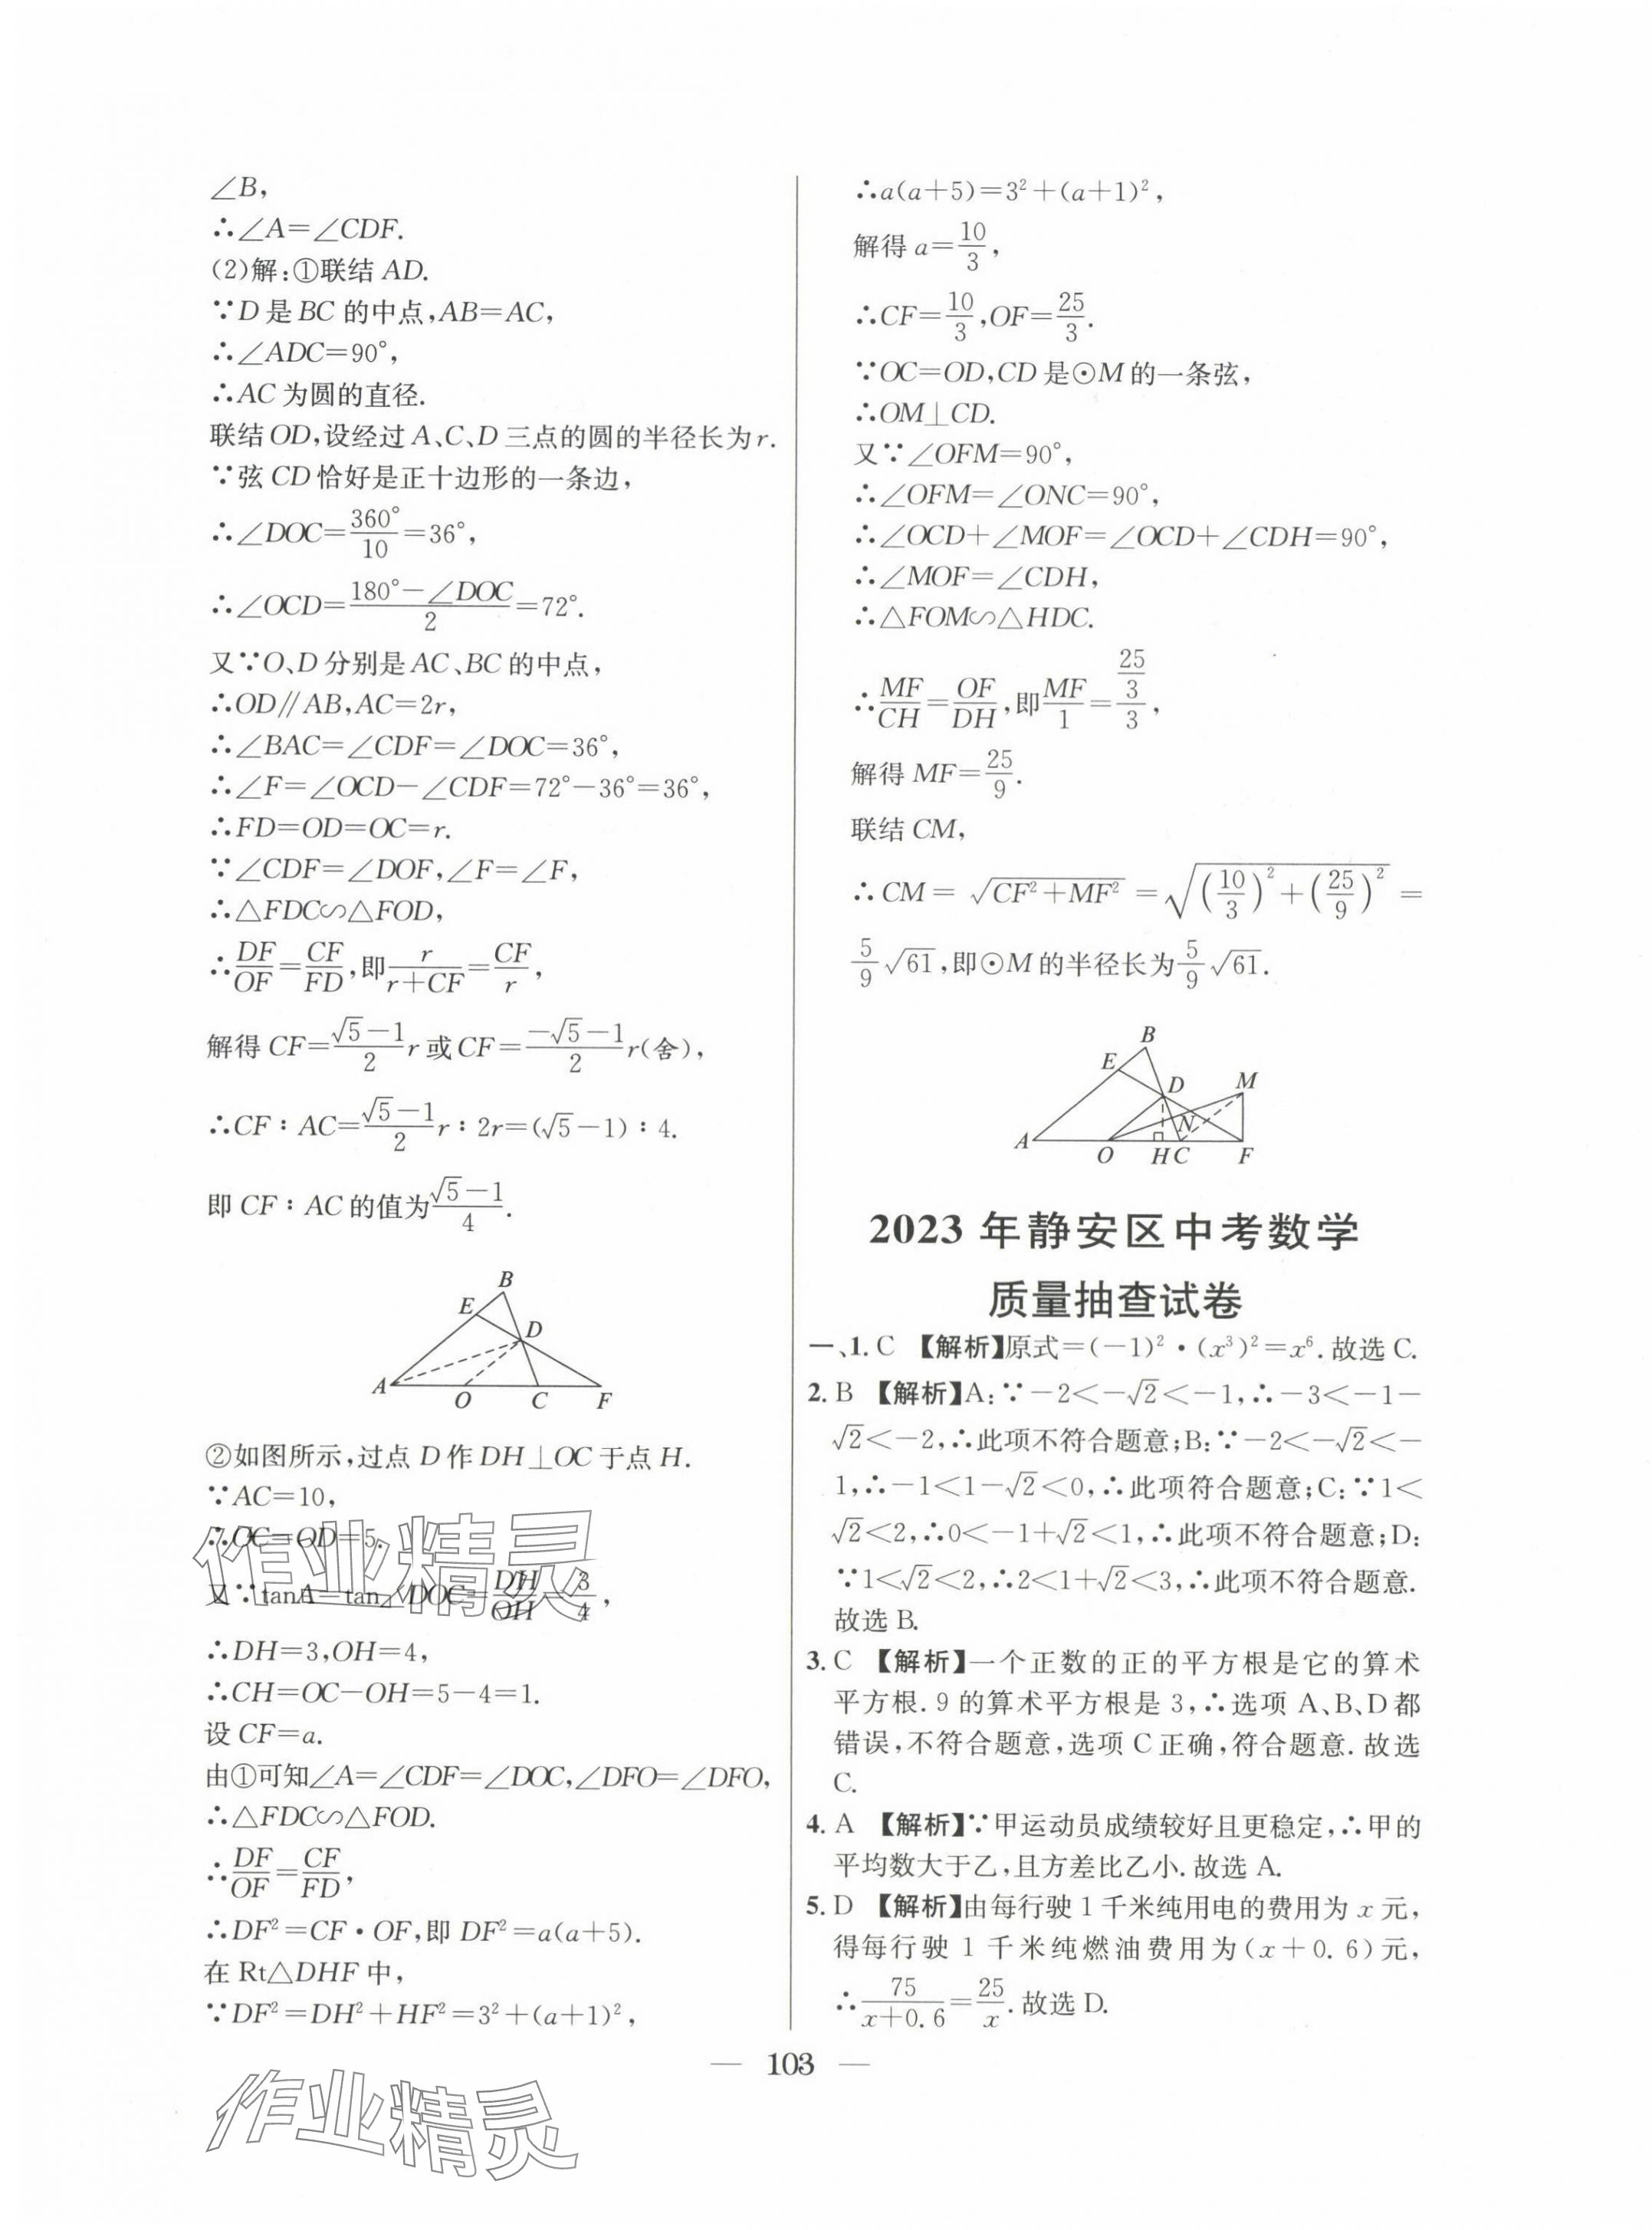 ∠B,
∴∠A=∠CDF.
(2)解:①联结 AD.
∵D 是 BC 的中点,AB=AC,
∴∠ADC=90°,
∴AC 为圆的直径.
联结 OD,设经过 A、C、D 三点的圆的半径长为 r.
∵弦 CD 恰好是正十边形的一条边,
∴∠DOC=360°/10=36°,
∴∠OCD=(180°-∠DOC)/2=72°.
又∵O、D 分别是 AC、BC 的中点,
∴OD∥AB,AC=2r,
∴∠BAC=∠CDF=∠DOC=36°,
∴∠F=∠OCD-∠CDF=72°-36°=36°,
∴FD=OD=OC=r.
∵∠CDF=∠DOF,∠F=∠F,
∴△FDC∽△FOD,
∴DF/OF=CF/FD,即r/(r+CF)=CF/r,
解得 CF=(√5-1)/2 r 或 CF=(-√5-1)/2 r(舍),
∴CF∶AC=(√5-1)/2 r∶2r=(√5-1)∶4.
即 CF∶AC 的值为(√5-1)/4.
B
E
D
A
O
C
F
②如图所示,过点 D 作 DH⊥OC 于点 H.
∵AC=10,
∴OC=OD=5.
又∵tanA=tan∠DOC=DH/OH=3/4,
∴DH=3,OH=4,
∴CH=OC-OH=5-4=1.
设 CF=a.
由①可知∠A=∠CDF=∠DOC,∠DFO=∠DFO,
∴△FDC∽△FOD.
∴DF/OF=CF/FD,
∴DF²=CF·OF,即 DF²=a(a+5).
在 Rt△DHF 中,
∵DF²=DH²+HF²=3²+(a+1)²,
∴a(a+5)=3²+(a+1)²,
解得 a=10/3,
∴CF=10/3,OF=25/3.
∵OC=OD,CD 是⊙M 的一条弦,
∴OM⊥CD.
又∵∠OFM=90°,
∴∠OFM=∠ONC=90°,
∴∠OCD+∠MOF=∠OCD+∠CDH=90°,
∴∠MOF=∠CDH,
∴△FOM∽△HDC.
∴MF/CH=OF/DH,即MF/1=(25/3)/3,
解得 MF=25/9.
联结 CM,
∴CM=√(CF²+MF²)=√((10/3)²+(25/9)²)=
5/9√61,即⊙M 的半径长为5/9√61.
B
E
D
M
N
A
O
H
C
F
2023 年静安区中考数学
质量抽查试卷
一、1. C 【解析】原式=(-1)²·(x³)²=x⁶. 故选 C.
2. B 【解析】A:∵-2<-√2<-1,∴-3<-1-
√2<-2,∴此项不符合题意;B:∵-2<-√2<-
1,∴-1<1-√2<0,∴此项符合题意;C:∵1<
√2<2,∴0<-1+√2<1,∴此项不符合题意;D:
∵1<√2<2,∴2<1+√2<3,∴此项不符合题意.
故选 B.
3. C 【解析】一个正数的正的平方根是它的算术
平方根. 9 的算术平方根是 3,∴选项 A、B、D 都
错误,不符合题意,选项 C 正确,符合题意. 故选
C.
4. A 【解析】∵甲运动员成绩较好且更稳定,∴甲的
平均数大于乙,且方差比乙小. 故选 A.
5. D 【解析】由每行驶 1 千米纯用电的费用为 x 元,
得每行驶 1 千米纯燃油费用为(x+0.6)元,
∴75/(x+0.6)=25/x. 故选 D.
— 103 —
作业精灵
作业精灵